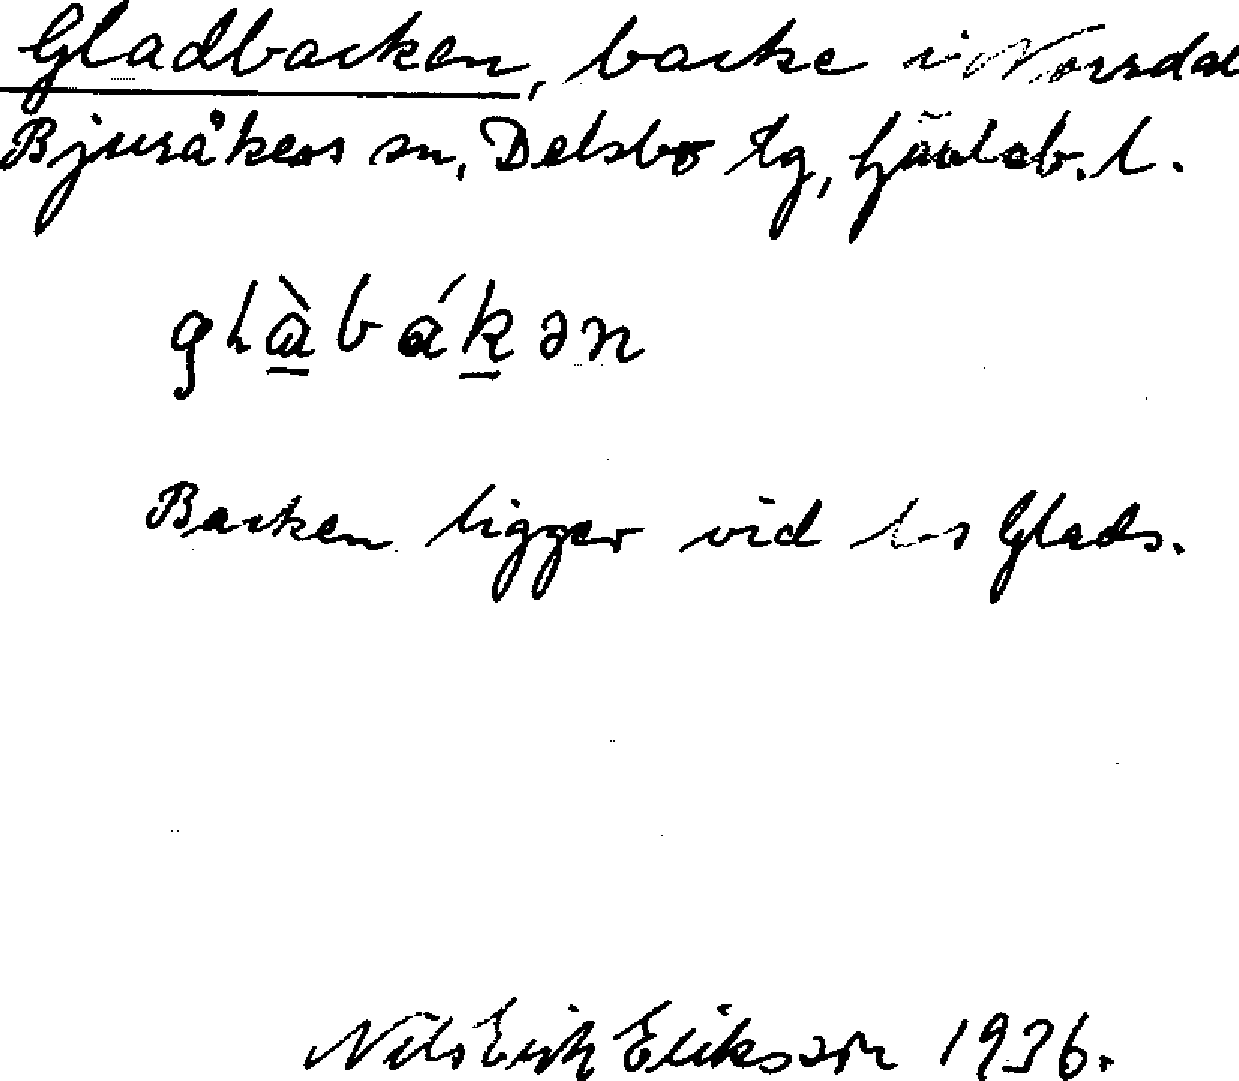 Gladbacken, backe i Norrdel
Bjuråkers sn, Delsbo tg, Gävleb. l.
glàbákən
Backen ligger vid Glads.
Nils Erik Eriksson 1936.